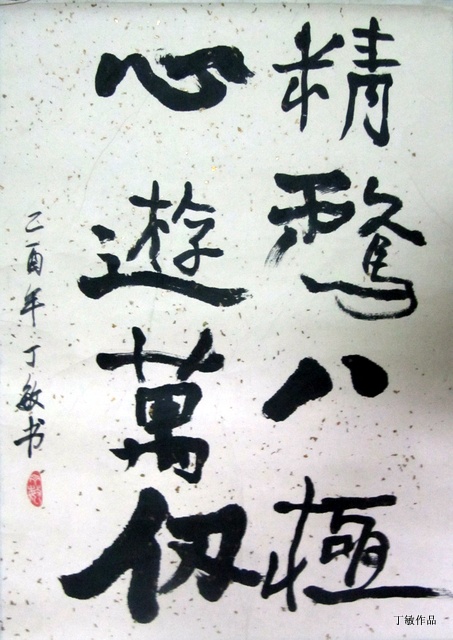 精骛八極
心遊萬仞
乙酉年丁敏书
丁敏作品